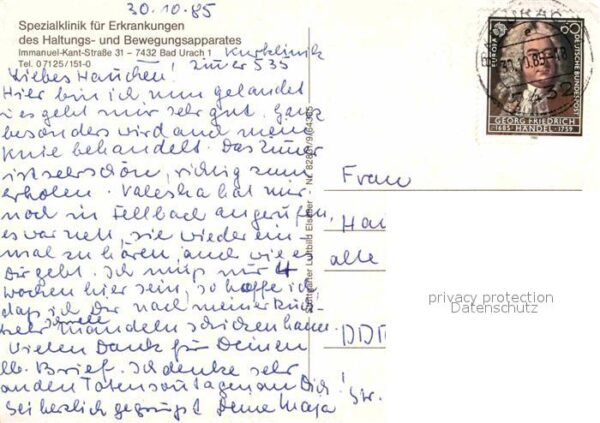 30.10.85
Spezialklinik für Erkrankungen
des Haltungs- und Bewegungsapparates
Immanuel-Kant-Straße 31 – 7432 Bad Urach 1
Tel. 07125/151-0
Kurklinik
Zimmer 535
Liebes Hannchen!
Hier bin ich nun gelandet
es geht mir sehr gut. Ganz
besonders wird an meine
Knie behandelt. Das Zimmer
ist sehr schön, richtig zum
erholen. Valeska hat mir
noch in Fellbach angerufen,
es war nett, sie wieder ein-
mal zu hören, auch wie es
Dir geht. Ich muß nur 4
Wochen hier sein, so hoffe ich
daß ich Dir nach meiner Rück-
kehr schnell Mandeln schicken kann.
Vielen Dank für Deinen
lb. Brief. Ich denke sehr
an den Totensonntagen an Dich!
Sei herzlich gegrüßt Deine Maja
Luftbild Elsäßer
EUROPA
80
DEUTSCHE BUNDESPOST
GEORG FRIEDRICH
1685 HÄNDEL 1759
7432
Frau
alte
DDR
Str.
privacy protection
Datenschutz